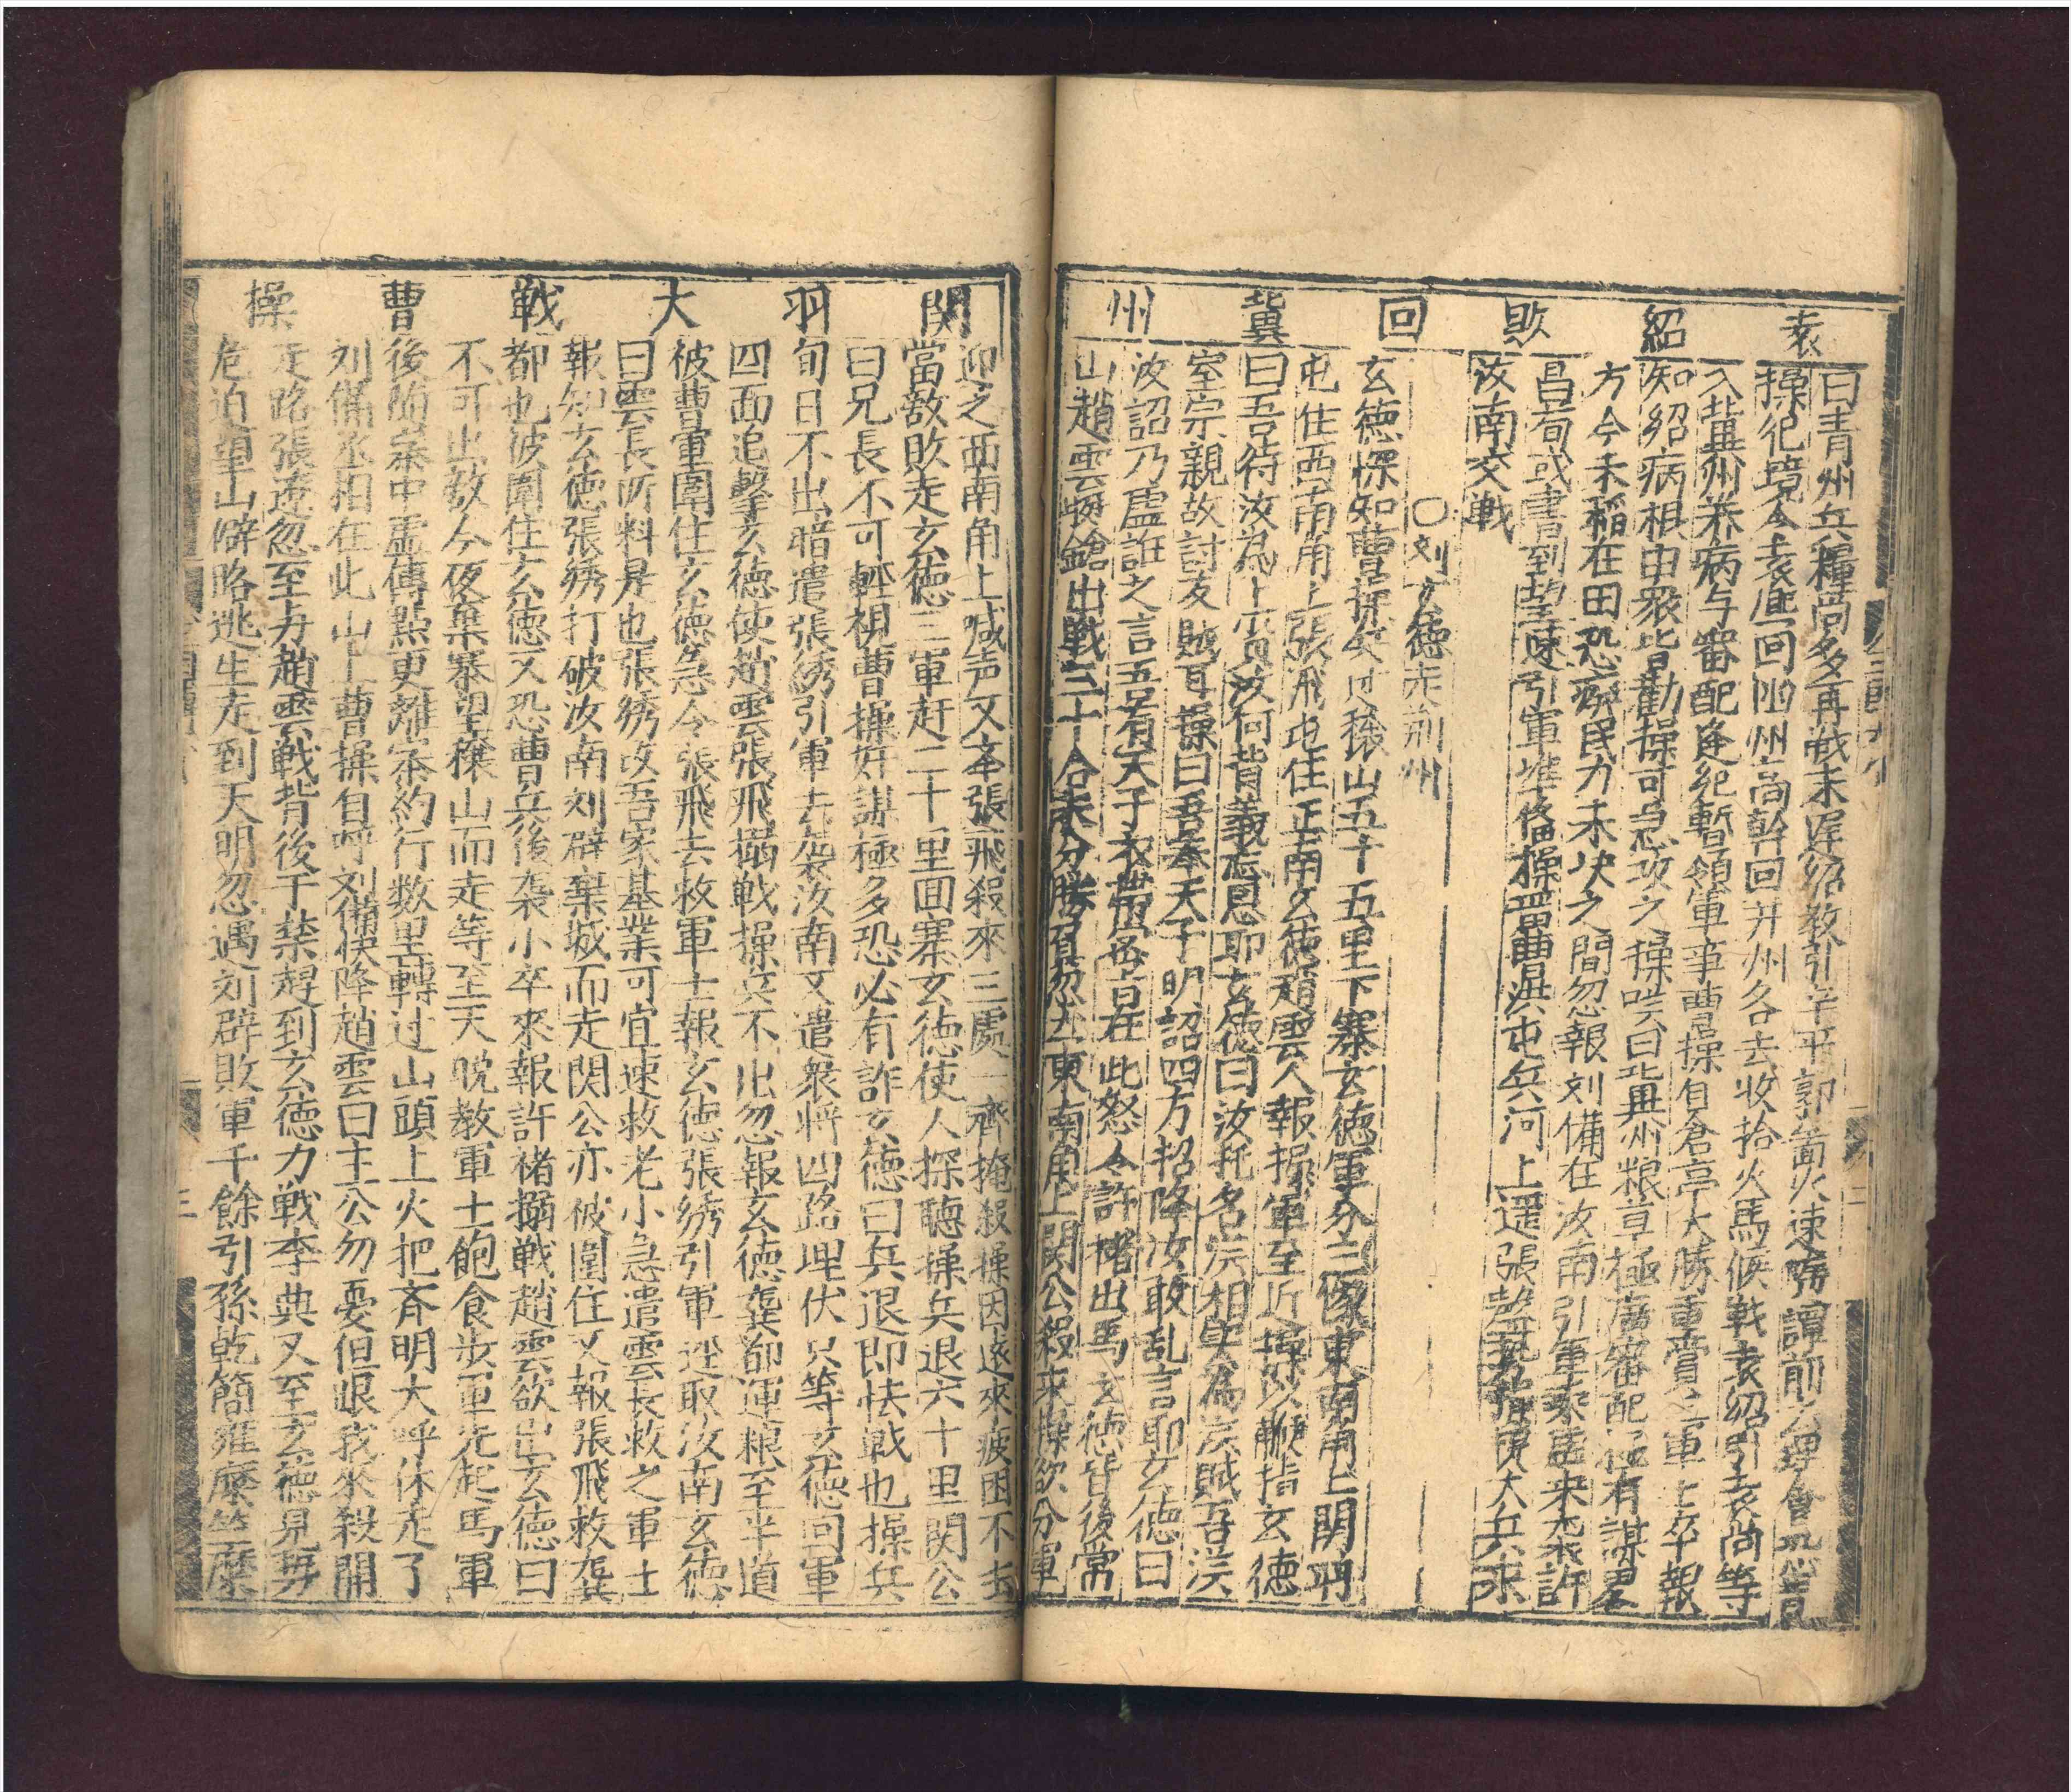 袁紹敗回冀州
曰青州兵糧尚多再戰未遲紹教引辛平郭圖火速 譚前去理會恐曹
操犯境令袁熙回幽州高幹回并州各去收拾火馬候戰袁紹引袁尚等
入冀州养病与審配逢紀暫領軍事曹操自倉亭大勝重賞三軍士卒報
知紹病根由衆皆勸操可急攻之操笑曰冀州粮草極廣審配極有謀畧
方今未稲在田恐癈民力未决之間忽報刘備在汝南引軍乘虚来 許
昌荀彧書到 引軍準俻操畱曹洪屯兵河上遥張聲勢 大兵来
汝南交戰
〇刘玄德走荊州
玄德探知曹操兵过穰山五十五里下寨玄德軍分三隊東南角上関羽
屯住西南角上張飛屯住正南玄徳趙雲人報操軍至近操以鞭指玄徳
曰吾待汝為上賓汝何背義忘恩耶玄徳曰汝托名汉相实為汉賊吾汉
室宗親故討友賊耳操曰吾奉天子明詔四方招降汝敢乱言耶玄徳曰
汝詔乃虛誑之言吾有天子衣帶密旨在此怒令許褚出馬玄徳背後常
山趙雲挺鎗出戰三十合未分勝負忽然東南角上関公殺来操欲分軍
関羽大戦曹操
迎之西南角上喊声又牽張飛殺來三處一齊掩殺操因遠來疲困不去
當敵敗走玄徳三軍赶二十里囬寨玄徳使人探聽操兵退六十里関公
曰兄長不可輕視曹操奸謀極多恐必有詐玄徳曰兵退即怯戰也操兵
旬日不出暗遣張綉引軍去袭汝南又遣衆將四路埋伏只等玄徳回軍
四面追擊玄徳使趙雲張飛搦戦操兵不出忽報玄徳龔都運粮至半道
被曹軍圍住玄徳急令張飛去救軍士報玄徳張綉引軍逕取汝南玄徳
曰雲長所料是也張綉攻吾家基業可宜速救老小急遣雲長救之軍士
報知玄徳張綉打破汝南刘辟棄城而走関公亦被圍住又報張飛救龔
都也被圍住玄徳又恐曹兵後袭小卒來報許褚搦戦趙雲欲出玄徳曰
不可出敌今夜棄寨望穰山而走等至天晩教軍士飽食步軍先起馬軍
後随寨中虛傳點更離寨約行数里轉过山頭上火把斉明大呼休走了
刘備丞相在此山上曹操自呼刘備快降趙雲曰主公勿憂但跟我來殺開
走路張遼忽至与趙雲戦背後于禁趕到玄徳力戰李典又至玄徳見势
危迫望山僻路逃生走到天明忽遇刘辟敗軍千餘引孫乾簡雍糜竺糜
三